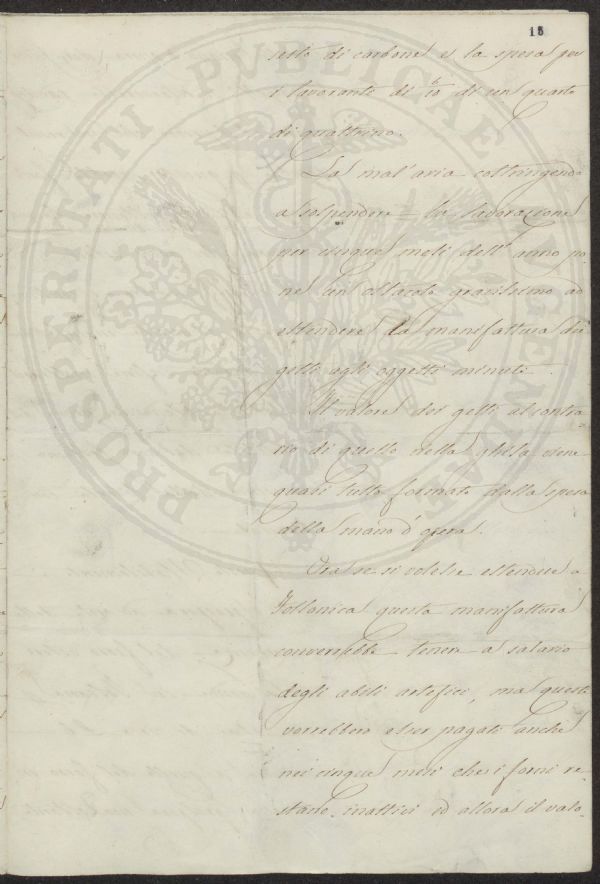 15
sesto di carbone e la spesa per
i lavorante di di un quarto
di quattrino.
La mal'aria costringendo
a sospendere la lavorazione
per cinque mesi dell'anno po-
ne un ostacolo gravissimo ad
estendere la manifattura dei
getti agli oggetti minuti.
Il valore dei getti al contra-
rio di quello della ghisa viene
quasi tutto formato dalla spesa
della mano d'opera.
Ora se si volesse estendere a
Follonica questa manifattura
converrebbe tenere a salario
degli abili artefici, ma questi
vorrebbero esser pagati anche
nei cinque mesi che i forni re-
stano inattivi ed allora il valo-
PROSPERITATI PUBLICAE